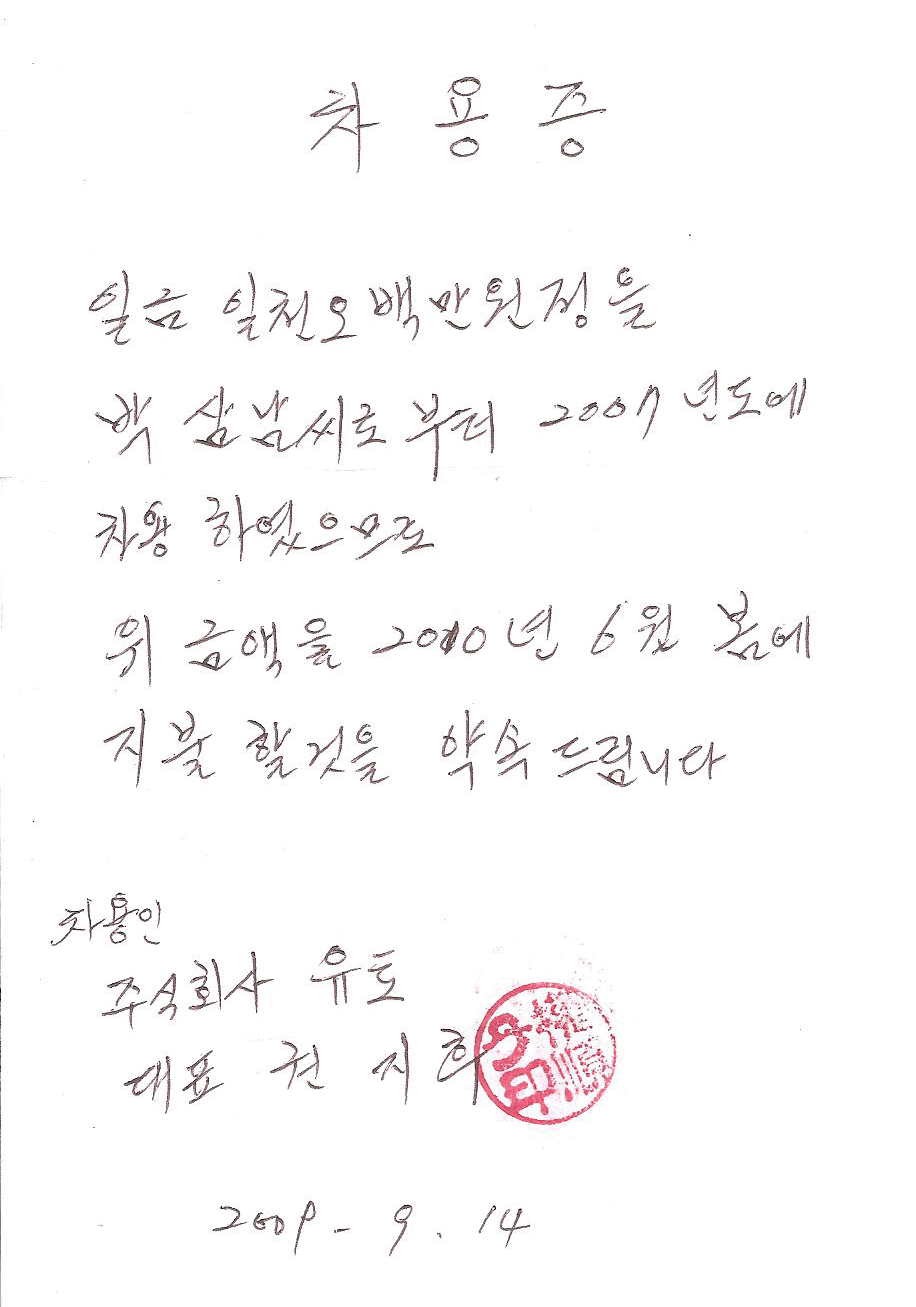 차 용 증
일금 일천오백만원정을
박 삼남씨로 부터 2007 년도에
차용 하였으므로
위 금액을 2010년 6월 봄에
지불 할것을 약속 드립니다
차용인
주식회사 유토
대표 권 지
2009 - 9 . 14